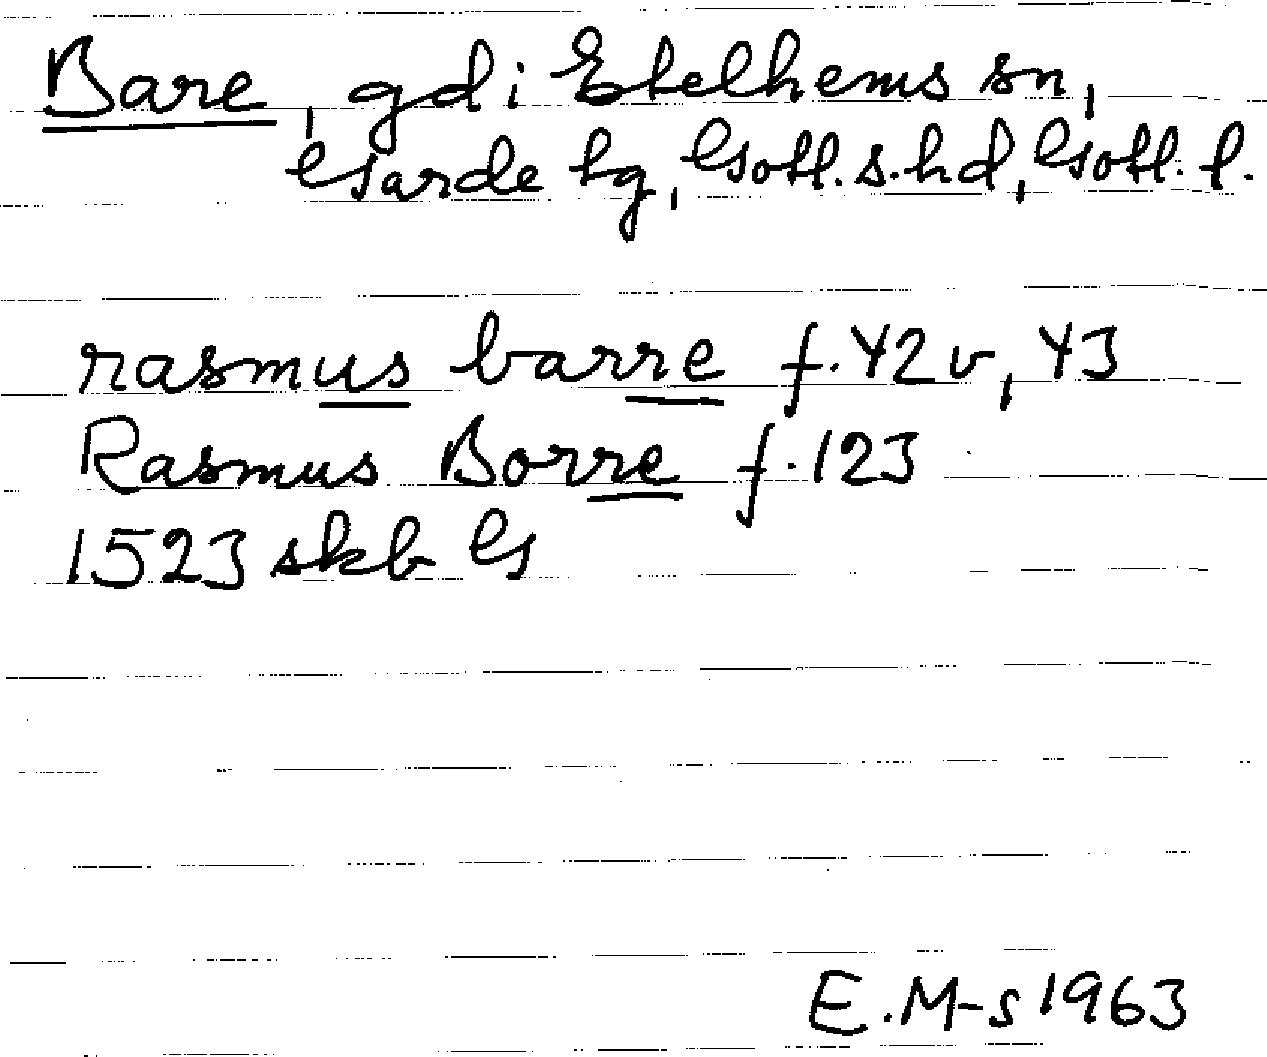 Bare, gd i Etelhems sn,
Garde tg, Gotl. s. hd, Gotl. l.
rasmus barre f. 42 v, 43
Rasmus Borre f. 123
1523 skb G
E. M-s 1963